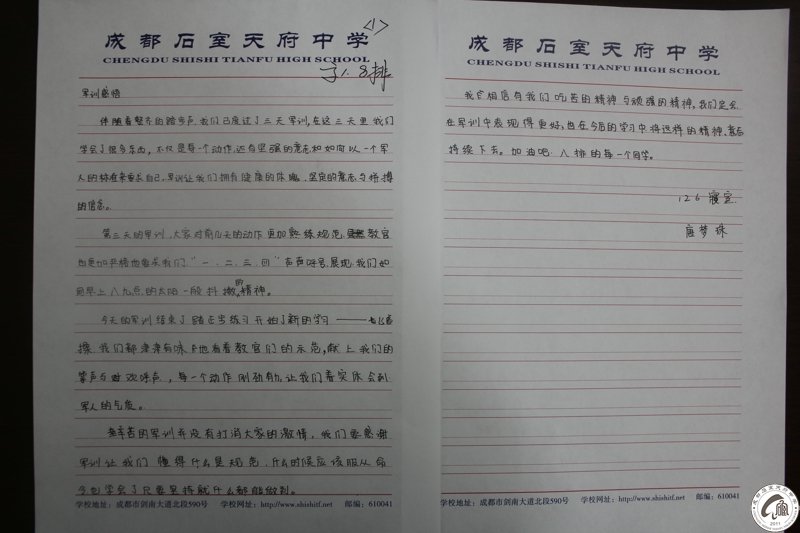 <1>
成都石室天府中学
CHENGDU SHISHI TIANFU HIGH SCHOOL
8排
军训感悟
伴随着整齐的踏步声,我们已度过了三天军训,在这三天里我们
学会了很多东西,不仅是每一个动作,还有坚强的意志和如何以一个军
人的标准来要求自己,军训让我们拥有健康的体魄,坚定的意志与拼搏
的信念。
第三天的军训,大家对前几天的动作更加熟练规范,虽然教官
也更加严格地要求我们,"一、二、三、四"声声呼号,展现我们如
同早上八九点的太阳一般抖擞的精神。
今天的军训结束了踏正步练习开始了新的学习——
操,我们都津津有味地看着教官们的示范,献上我们的
掌声与欢呼声,每一个动作刚劲有力,让我们着实体会到
军人的气质。
辛苦的军训并没有打消大家的激情,我们要感谢
军训让我们懂得什么是规范,什么时候应该服从命
令也学会了只要坚持就什么都能做到。
学校地址:成都市剑南大道北段590号 学校网址:http://www.shishitf.net 邮编:610041
成都石室天府中学
CHENGDU SHISHI TIANFU HIGH SCHOOL
我们相信有我们吃苦的精神与顽强的精神,我们定会
在军训中表现得更好,也在今后的学习中将这样的精神、意志
持续下去。加油吧,八排的每一个同学。
126寝室
唐梦珠
学校地址:成都市剑南大道北段590号 学校网址:http://www.shishitf.net 邮编:610041
2011